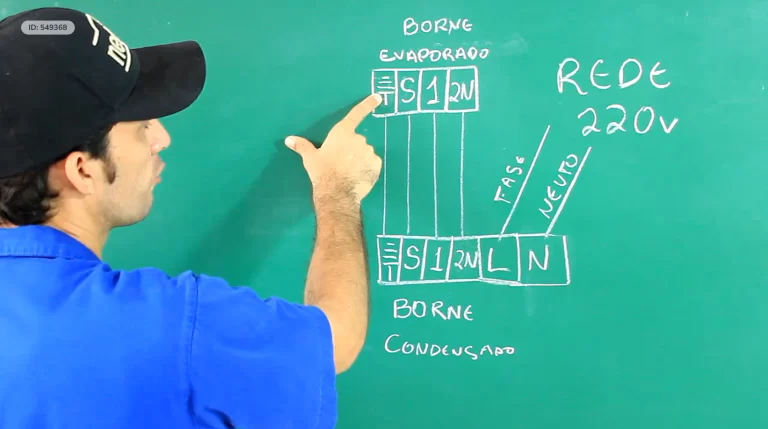 ID: 549368
BORNE
EVAPORADO
S 1 2N
REDE
220V
FASE
NEUTO
S 1 2N L N
BORNE
CONDENSADO